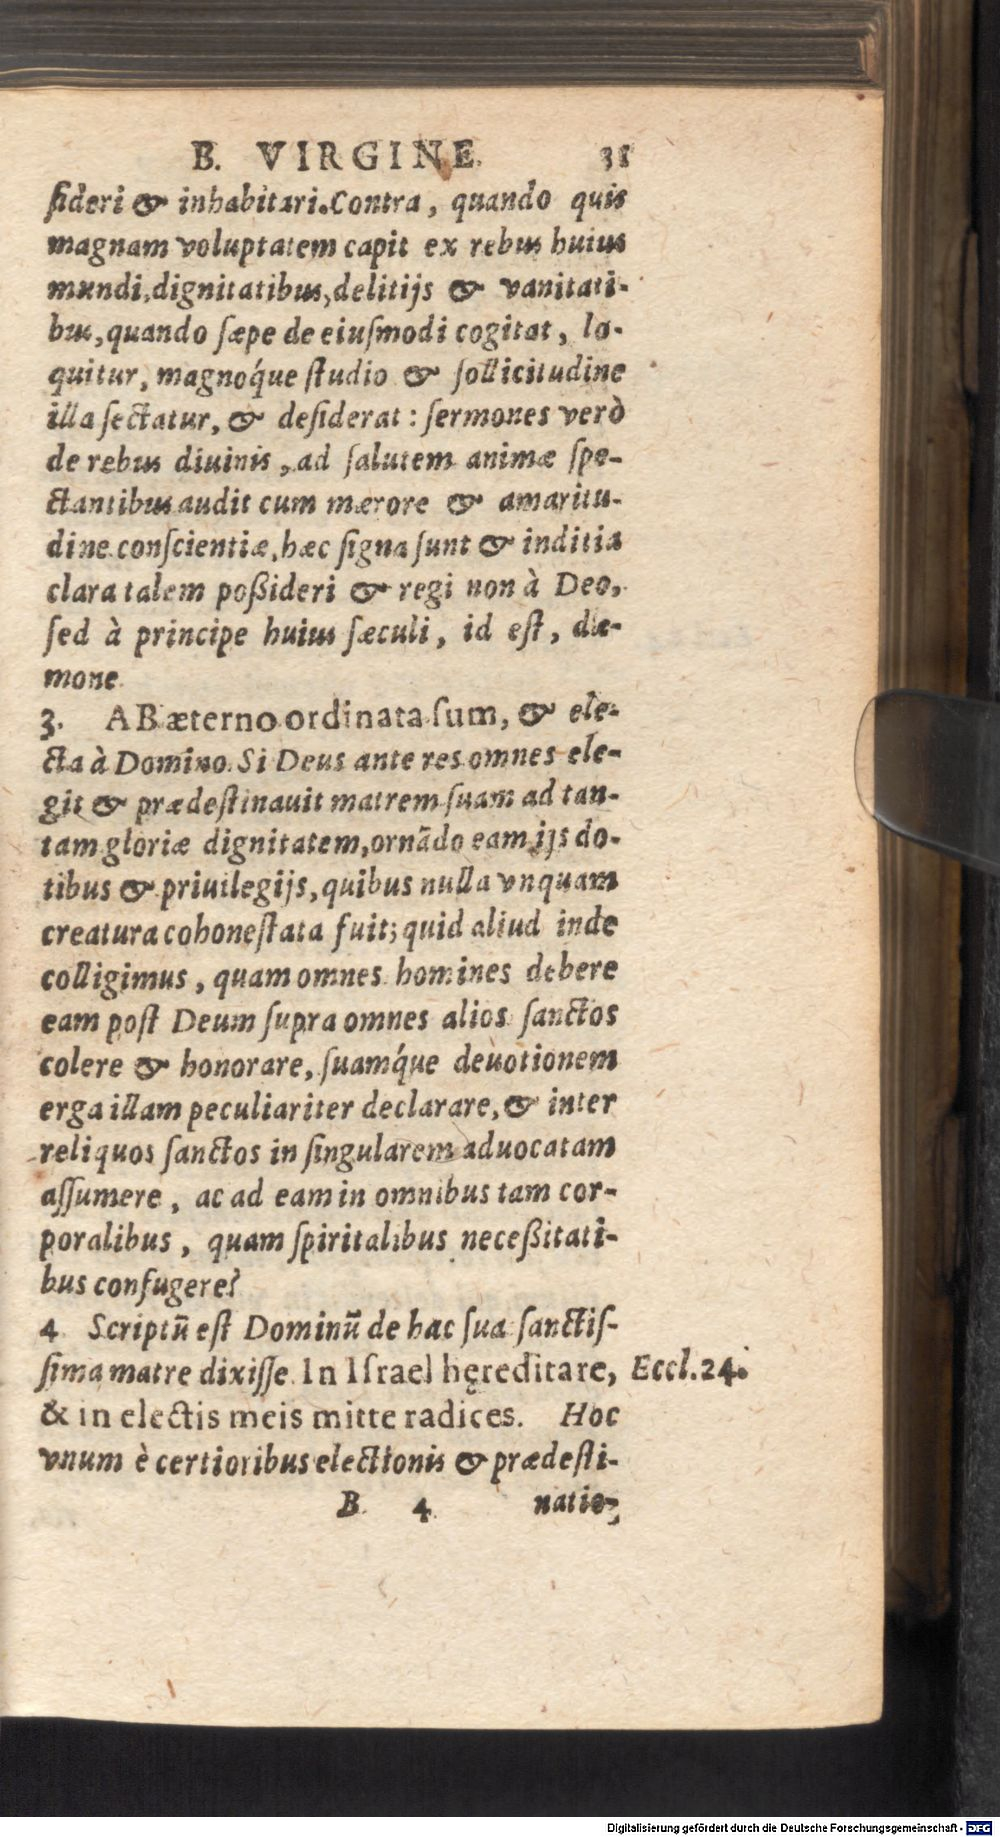 B. VIRGINE. 31
ſideri & inhabitari. Contra, quando quis
magnam voluptatem capit ex rebus huius
mundi, dignitatibus, delitijs & vanitati-
bus, quando ſæpe de eiuſmodi cogitat, lo-
quitur, magnoq́ue ſtudio & ſollicitudine
illa ſectatur, & deſiderat: ſermones verò
de rebus diuinis, ad ſalutem animæ ſpe-
ctantibus audit cum mærore & amaritu-
dine conſcientiæ, hæc ſigna ſunt & inditia
clara talem poßideri & regi non à Deo,
ſed à principe huius ſæculi, id eſt, dæ-
mone.
3. AB æterno ordinata ſum, & ele-
cta à Domino. Si Deus ante res omnes ele-
git & prædeſtinauit matrem ſuam ad tan-
tam gloriæ dignitatem, ornādo eam ijs do-
tibus & priuilegijs, quibus nulla vnquam
creatura cohoneſtata fuit; quid aliud inde
colligimus, quam omnes homines debere
eam poſt Deum ſupra omnes alios ſanctos
colere & honorare, ſuamq́ue deuotionem
erga illam peculiariter declarare, & inter
reliquos ſanctos in ſingularem aduocatam
aſſumere, ac ad eam in omnibus tam cor-
poralibus, quam ſpiritalibus neceßitati-
bus confugere?
4 Scriptū eſt Dominū de hac ſua ſanctiſ-
ſima matre dixiſſe. In Iſrael hęreditare, Eccl. 24.
& in electis meis mitte radices. Hoc
vnum è certioribus electionis & prædeſti-
B 4 natio-
Digitalisierung gefördert durch die Deutsche Forschungsgemeinschaft - DFG